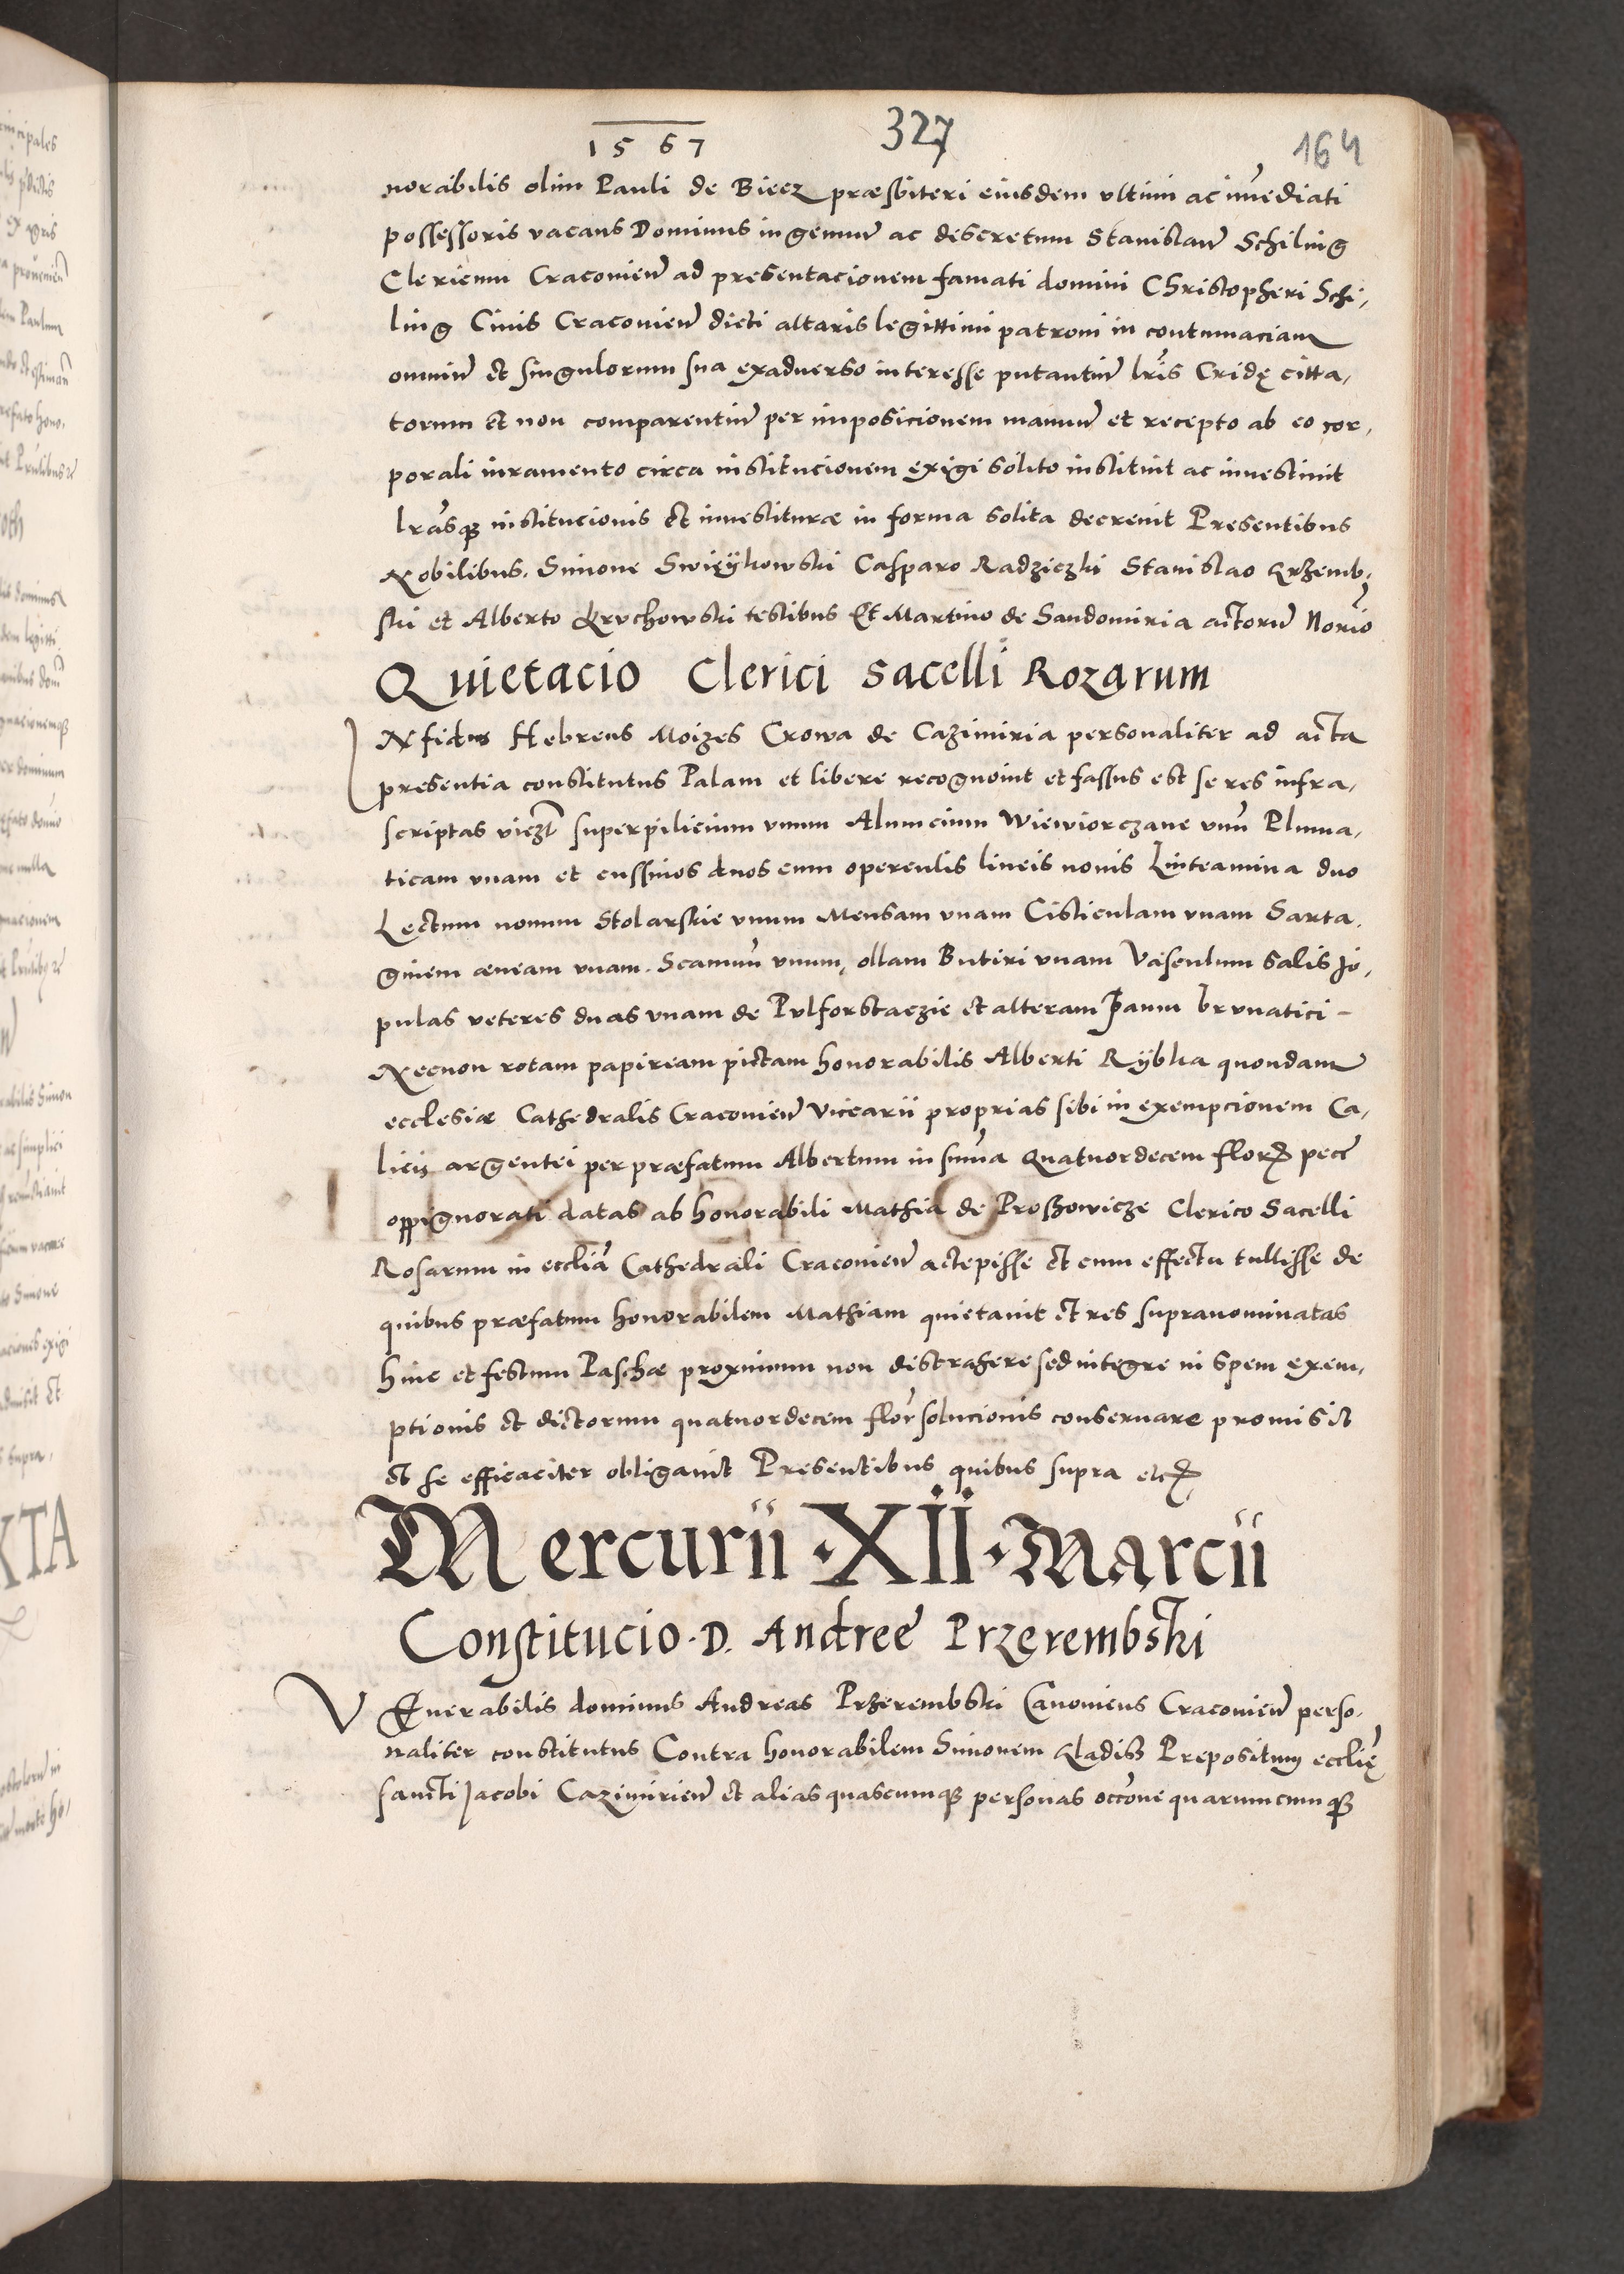 1567
327
164
norabilis olim Pauli de Biecz præsbiteri eiusdem vltimi ac im̃ediati
possessoris vacans Dominus ingenuũ ac discretum Stanislaũ Schiling
Clericum Cracovieñ ad presentacionem famati domini Christopheri Schi,
ling Civis Cracovieñ dicti altaris legittimi patroni in contumaciam
omniũ et singulorum sua exadverso interesse putantiũ lr̃is Cridę citta,
torum et non comparentiũ per imposicionem manuũ et recepto ab eo cor,
porali iuramento circa institucionem exigi solito instituit ac investivit
lr̃asqʒ institucionis et investituræ in forma solita decrevit Presentibus
Nobilibus. Simone Swiẏkowski Casparo Radziczki Stanislao Krzemb,
ski et Alberto Kruchowski testibus Et Martino de Sandomiria actorũ Norio
Quietacio Clerici Sacelli Rozarum
INfidus Hebreus Moizes Crowa de Cazimiria personaliter ad acta
presentia constitutus Palam et libere recognovit et fassus est se res infra,
scriptas viczt superpilicium vnum Alumcium Wiewiorczane vnũ Pluma,
ticam vnam et cussinos duos cum operculis lineis novis Linteamina duo
Lectum novum Stolarskie vnum Mensam vnam Cisticulam vnam Sarta.
ginem æneam vnam. Scamnũ vnum, ollam Butiri vnam Vasculum salis Jo,
pulas veteres duas vnam de Pulforstaczie et alteram panni brunatici -
Necnon rotam papiream pictam honorabilis Alberti Rÿbka quondam
ecclesiæ Cathedralis Cracovieñ Vicearii proprias sibi in exempcionem Ca,
licis argentei per præfatum Albertum in sum̃a Quatuordecem floreʒ pecc̃
oppignorati datas ab honorabili Mathia de Proszowicze Clerico Sacelli
Rosarum in eccliã Cathedrali Cracovieñ accepisse et cum effectu tullisse de
quibus præfatum honorabilem Mathiam quietavit et res supranominatas
hinc et festum Paschæ proximum non distrahere sed integre in spem exem,
ptionis et dictorum quatuordecem flor̃ solucionis conservare promisit
et se efficaciter obligavit Presentibus quibus supra etcʒ
Mercurii · XII · Marcii
Constitucio · D. Andreæ Przerembski
VEnerabilis dominus Andreas Przerembski Canonicus Cracovieñ perso.
naliter constitutus Contra honorabilem Simonem Kladisz Prepositum ecclię
sancti Jacobi Cazimirieñ et alias quascumqʒ personas occõne quarumcumqʒ